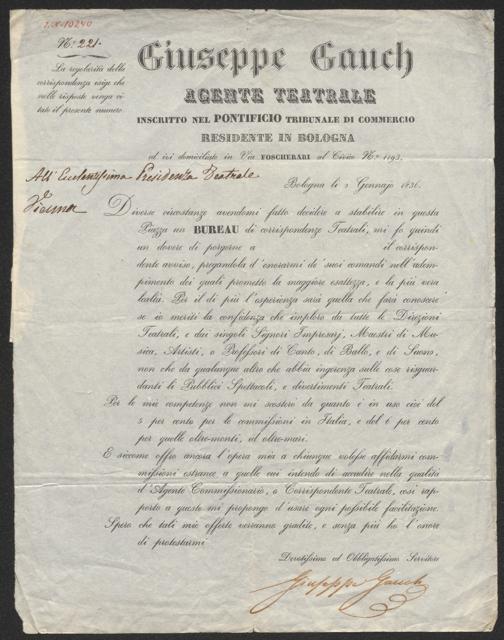 I.X-19240
N.º 221.
La regolarità della
corrispondenza esige che
nelle risposte venga ci-
tato il presente numero.
Giuseppe Gauch
AGENTE TEATRALE
INSCRITTO NEL PONTIFICIO TRIBUNALE DI COMMERCIO
RESIDENTE IN BOLOGNA
ed ivi domiciliato in Via FOSCHERARI al Civico N.º 1193.
All' Eccelentissima Presidenza Teatrale
Bologna li 2 Gennajo 1836.
di
Vienna
Diverse circostanze avendomi fatto decidere a stabilire in questa
Piazza un BUREAU di corrispondenze Teatrali, mi fo quindi
un dovere di porgerne a il corrispon-
dente avviso, pregandola d'onorarmi de' suoi comandi nell'adem-
pimento dei quali prometto la maggiore esattezza, e la più vera
lealtà. Per il di più l'esperienza sarà quella che farà conoscere
se io meriti la confidenza che imploro da tutte le Direzioni
Teatrali, e dai singoli Signori Impresarj, Maestri di Mu-
sica, Artisti, o Professori di Canto, di Ballo, e di Suono,
non che da qualunque altro che abbia ingerenza sulle cose risguar-
danti li Pubblici Spettacoli, e divertimenti Teatrali.
Per le mie competenze non mi scosterò da quanto è in uso cioè del
5 per cento per le commissioni in Italia, e del 6 per cento
per quelle oltre-monti, ed oltre-mari.
E siccome offro ancora l'opera mia a chiunque volesse affidarmi com-
missioni estranee a quelle cui intendo di accudire nella qualità
d'Agente Commissionario, o Corrispondente Teatrale, così rap-
porto a queste mi propongo d'usare ogni possibile facilitazione.
Spero che tali mie offerte verranno gradite, e senza più ho l'onore
di protestarmi
Devotissimo ed Obbligatissimo Servitore
Giuseppe Gauch